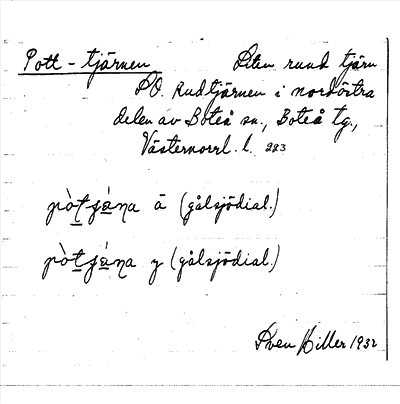 Pott-tjärnen Liten rund tjärn
SO. Rudtjärnen i nordöstra
delen av Boteå sn., Boteå tg.,
Västernorrl. l. 283
ä (gålsjödial.)
y (gålsjödial.)
Sven Hiller 1932